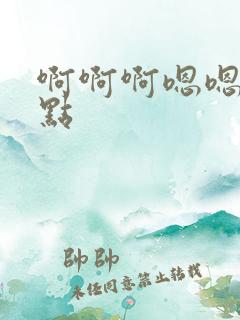 啊啊啊嗯嗯
點
帥帥
未经同意禁止转载